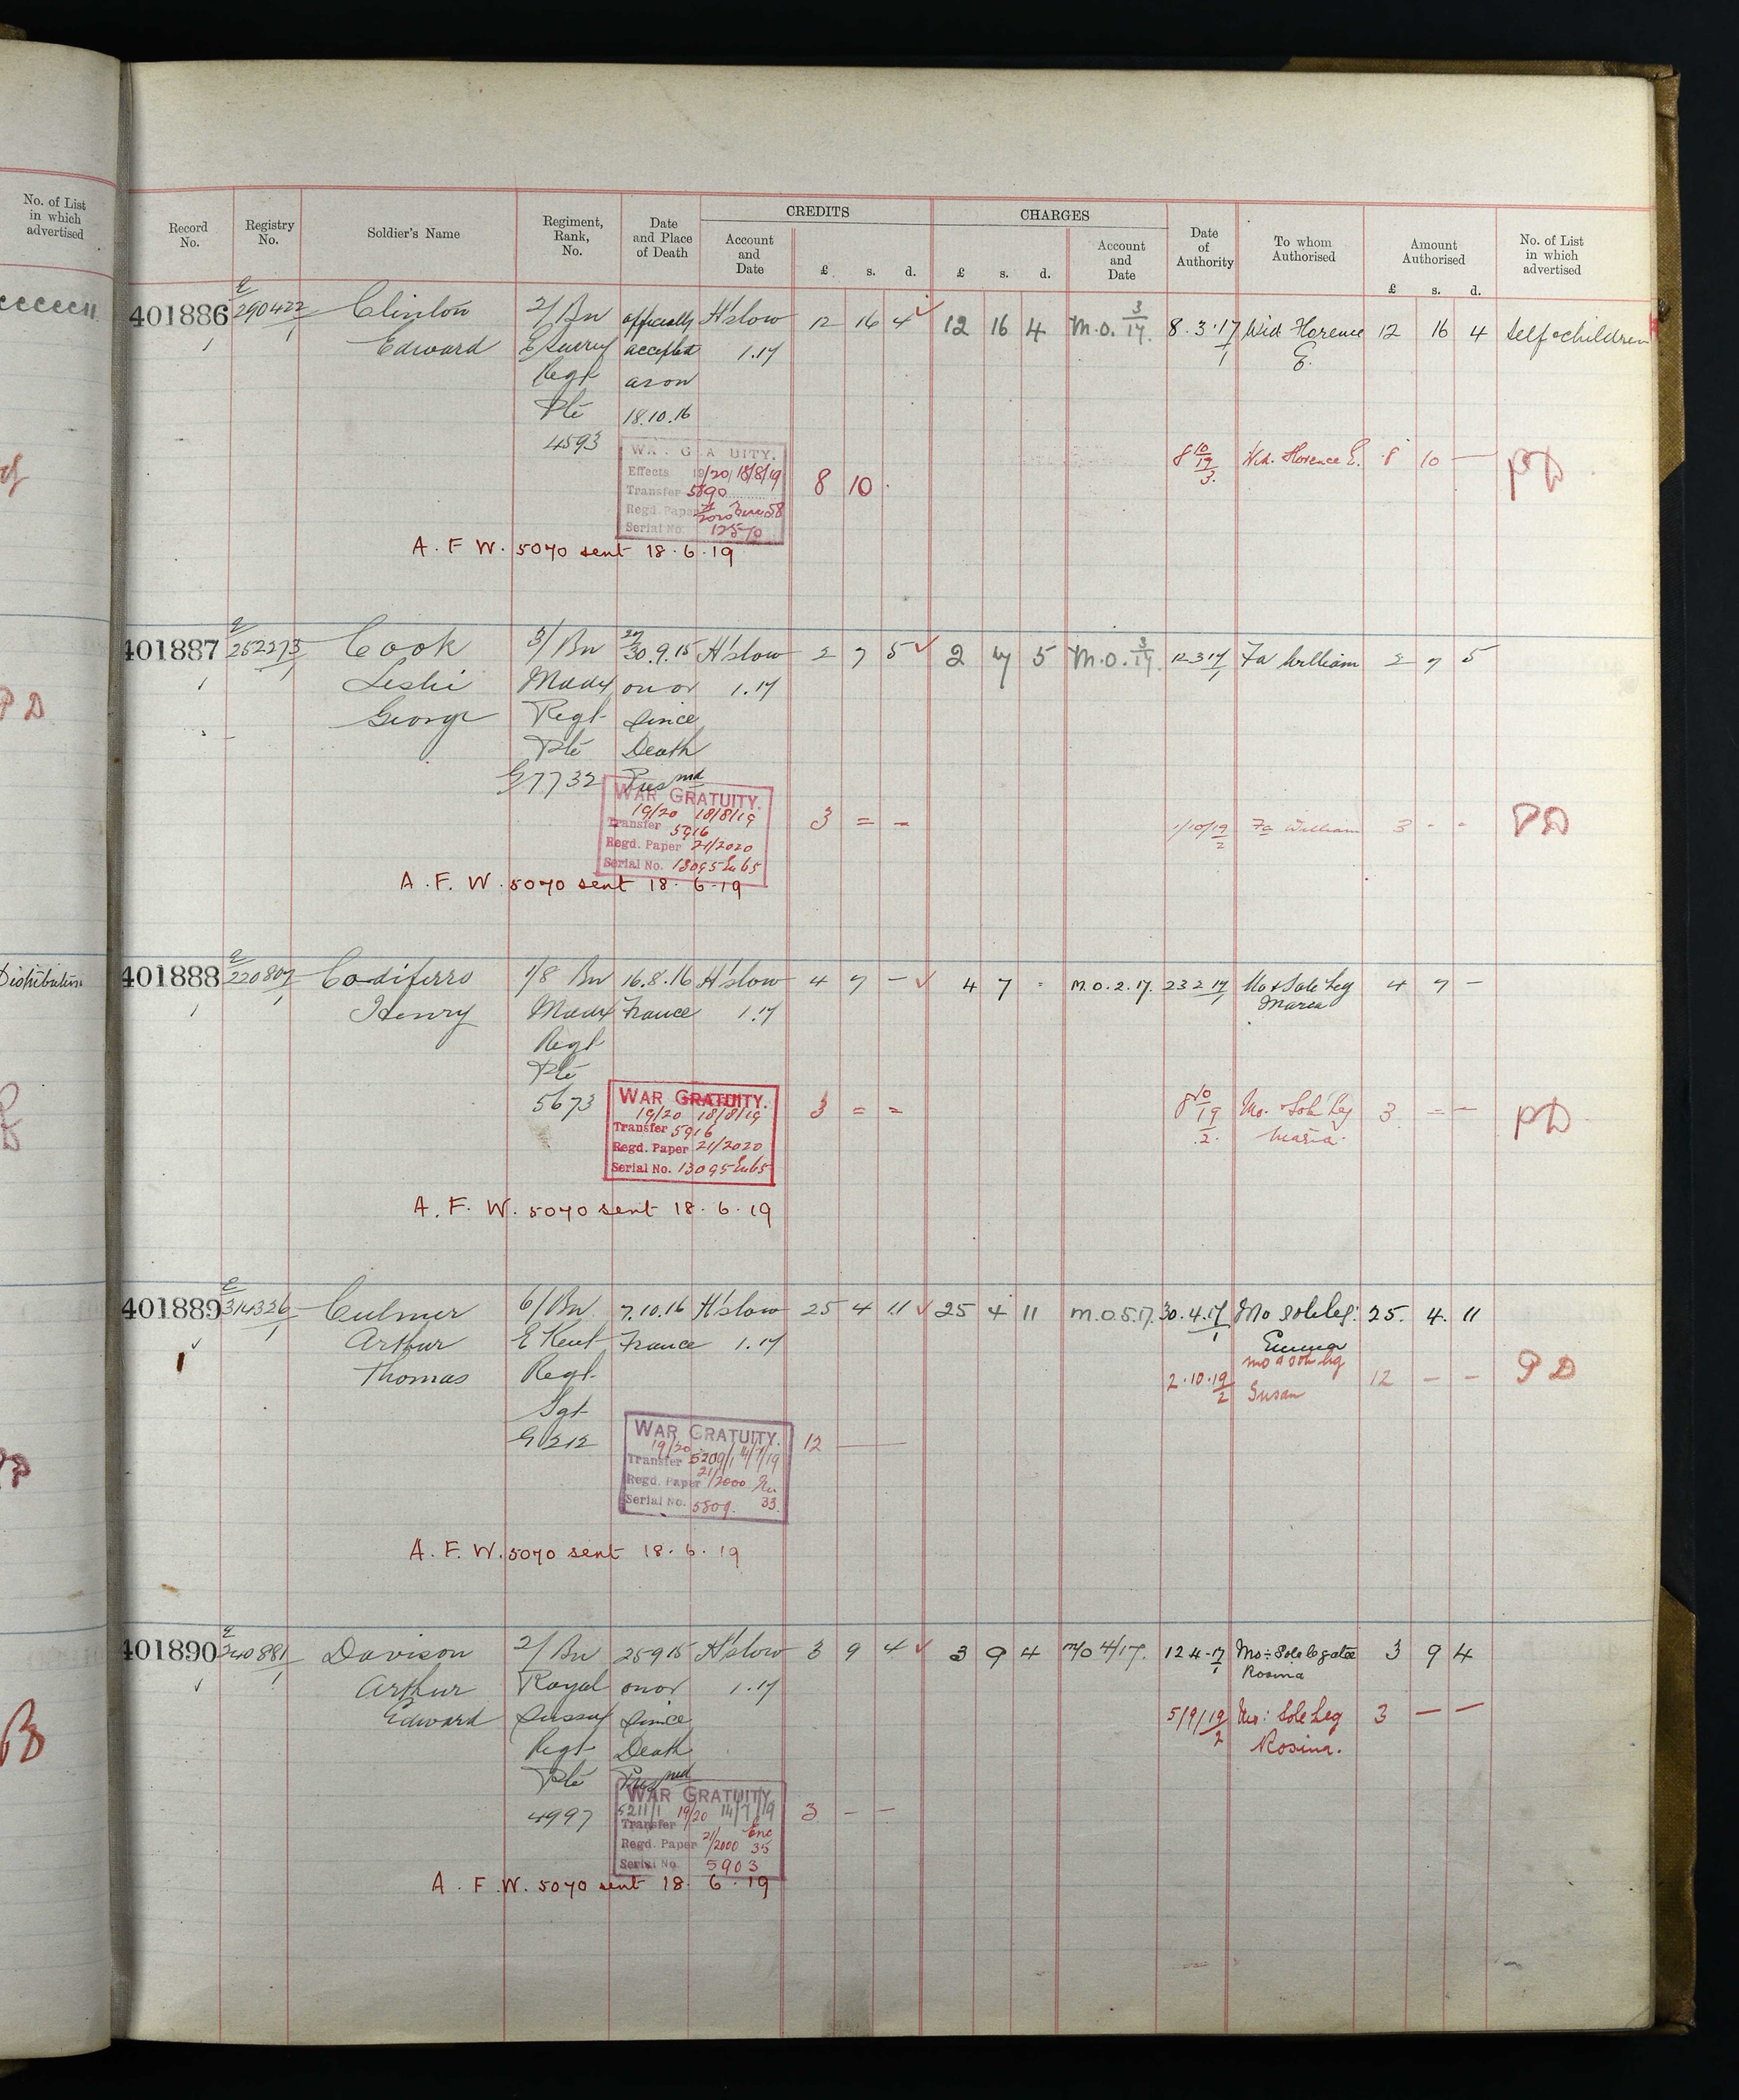 No. of List
in which
advertised
Distribution
PD
Record
No.
Registry
No.
Soldier's Name
Regiment,
Rank,
No.
Date
and Place
of Death
CREDITS
Account
and
Date
£ s. d.
CHARGES
£ s. d.
Account
and
Date
Date
of
Authority
To whom
Authorised
Amount
Authorised
£ s. d.
No. of List
in which
advertised
401886 E 290422/1 Clinton 2/Bn officially H'slow 12 16 4 12 16 4 M.O. 3/17. 8.3.17 Wid Florence 12 16 4 Self & children
Edward E Surrey accepted 1.17 1 E.
Regt as on
Pte 18.10.16
4593
WAR GRATUITY.
Effects 19/20 18/8/19
Transfer 5890 8 10
Regd. Paper
Serial No. 12570
8 10/19 3. Wid. Florence E. 8 10 — PD
A. F. W. 5070 sent 18.6.19
401887 E 252273/1 Cook 3/Bn 29/30.9.15 H'slow 2 7 5 2 7 5 M.O. 3/17. 12 3 17/1 Fa William 2 7 5
Leslie Middx on or 1.17
George Regt since
Pte Death
G/7732 Presmd
WAR GRATUITY.
19/20 18/8/19 3 = -
Transfer 5916
Regd. Paper 21/2020
Serial No. 13095
1/10/19/2 Fa William 3 - - PD
A. F. W. 5070 sent 18.6.19
401888 E 220807/1 Codiferro 1/8 Bn 16.8.16 H'slow 4 7 — 4 7 - M.O. 2.17. 23 2 17/1 Mo & Sole Leg 4 7 —
Henry Middx France 1.17 Maria
Regt
Pte
5673
WAR GRATUITY.
19/20 18/8/19 3 = =
Transfer 5916
Regd. Paper 21/2020
Serial No. 13095
8 10/19/2. Mo. & Sole Leg 3 = — PD
Maria.
A. F. W. 5070 sent 18.6.19
401889 E 314326/1 Culmer 6/Bn 7.10.16 H'slow 25 4 11 25 4 11 M.O. 5.17. 30.4.17/1 Mo Sole Leg. 25. 4. 11
Arthur E Kent France 1.17 Emma
Thomas Regt
Sgt
G/212
2.10.19/2 Mo & Sole Leg 12 — — PD
Susan
WAR GRATUITY. 12 —
19/20
Transfer 5209/1 14/7/19
Regd. Paper 21/2000
Serial No. 5809. 33.
A. F. W. 5070 sent 18.6.19
401890 E 240881/1 Davison 2/Bn 25 9 15 H'slow 3 9 4 3 9 4 M/O 4/17. 12 4-17/1 Mo: Sole legatee 3 9 4
Arthur Royal on or 1.17 Rosina
Edward Sussex since
Regt Death
Pte Presmd
4997
5/9/19/2 Mo: Sole Leg 3 — —
Rosina.
WAR GRATUITY
5211/1 19/20 14/7/19 3 — —
Transfer
Regd. Paper 21/2000 Enc 35
Serial No 5903
A. F. W. 5070 sent 18.6.19